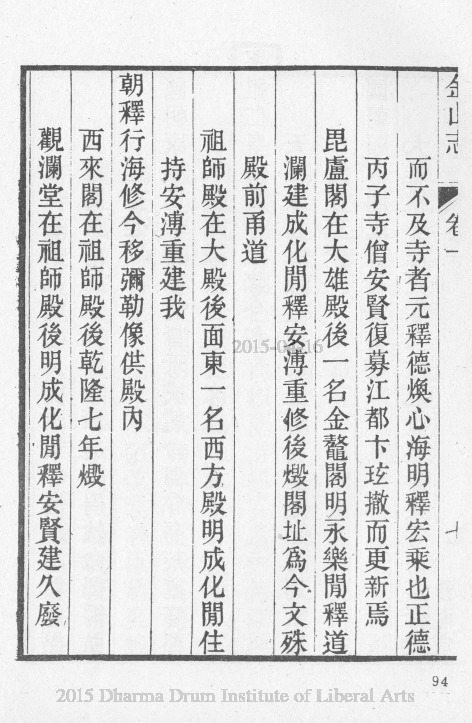 金山志 卷一 七
而不及寺者元釋德煥心海明釋宏乘也正德
丙子寺僧安賢復募江都卞玹撤而更新焉
毘盧閣在大雄殿後一名金鼇閣明永樂閒釋道
瀾建成化閒釋安溥重修後燬閣址爲今文殊
殿前甬道
祖師殿在大殿後面東一名西方殿明成化閒住
持安溥重建我
朝釋行海修今移彌勒像供殿內
西來閣在祖師殿後乾隆七年燬
觀瀾堂在祖師殿後明成化閒釋安賢建久廢
94
2015 Dharma Drum Institute of Liberal Arts